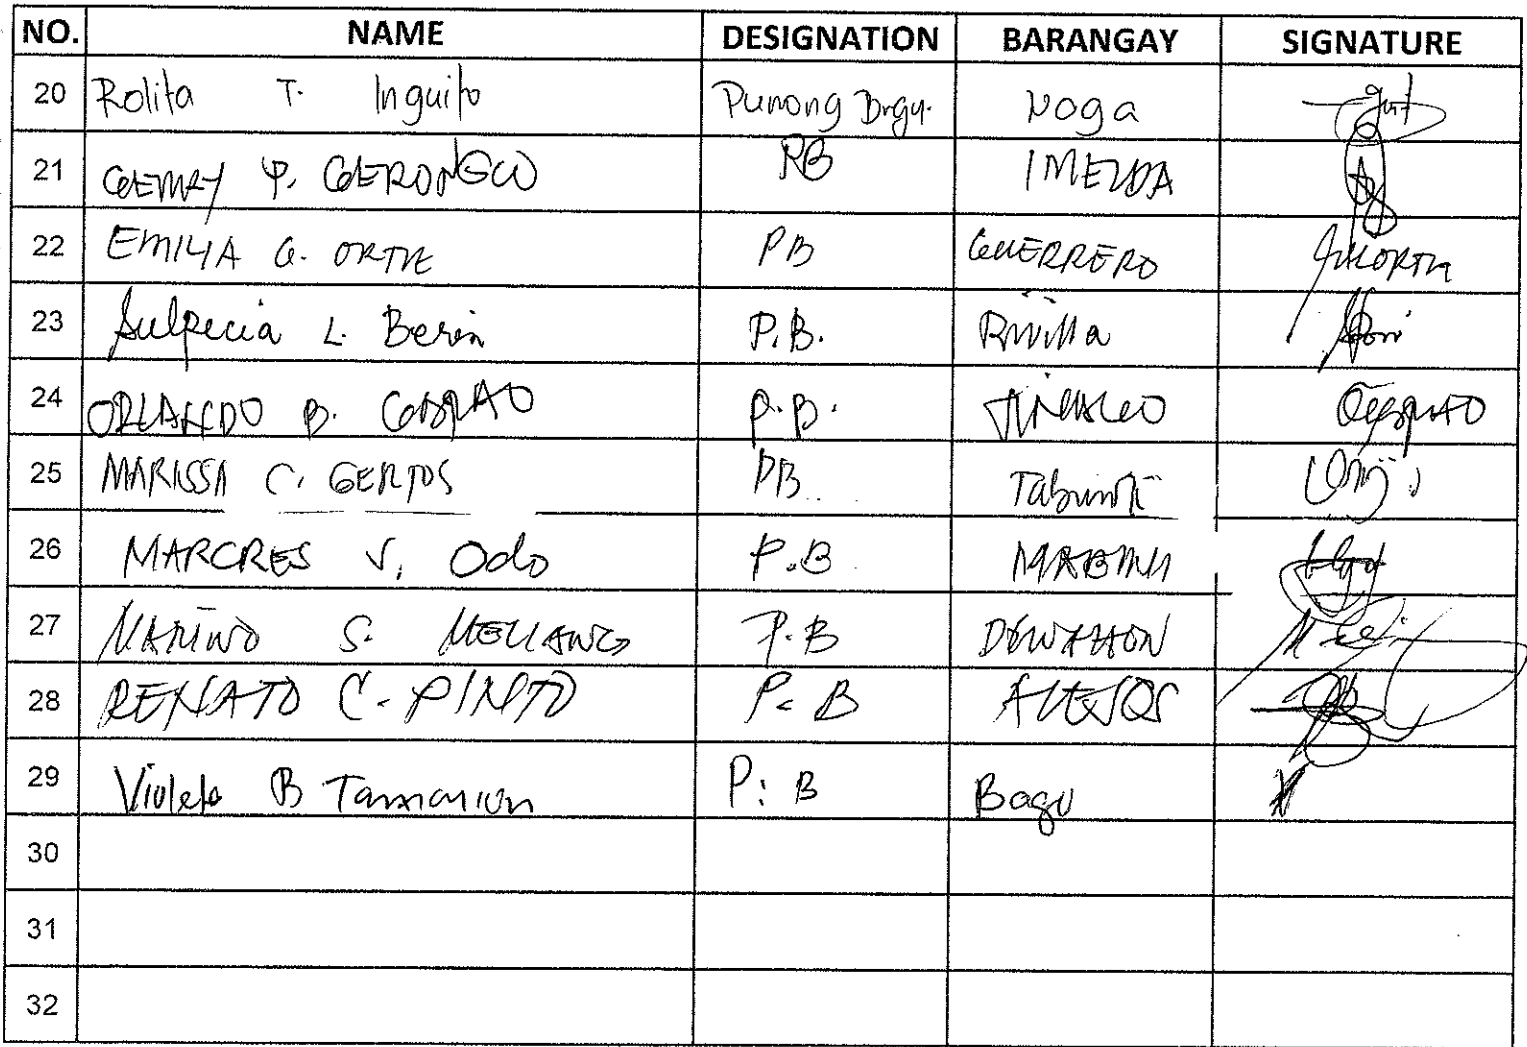 NO. NAME DESIGNATION BARANGAY SIGNATURE
20 Rolita T. Inguito Punong Brgy. Noga
21 GEMRY P. GERONGCO PB IMELDA
22 EMILIA G. ORTIZ PB GUERRERO
23 Sulpecia L. Berin P.B. Rivilla
24 ORLANDO B. P.B.
25 MARISSA C. GERTOS PB
26 MARCRES V. Odo P.B MABINI
27 MARINO S. MELLANO P.B
28 RENATO C. PINTO P. B ALEJOS
29 Violeta B Tamarion P. B Bago
30
31
32